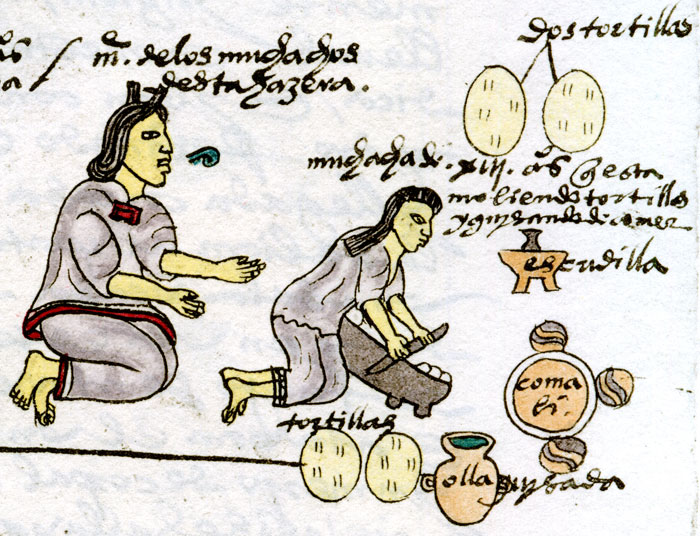 as / m. de los muchachos
desta hazera.
dos tortillas
muchacha de .xiij. as q esta
moliendo tortillas
y guisando de comer
escudilla
coma
li.
tortillas
olla